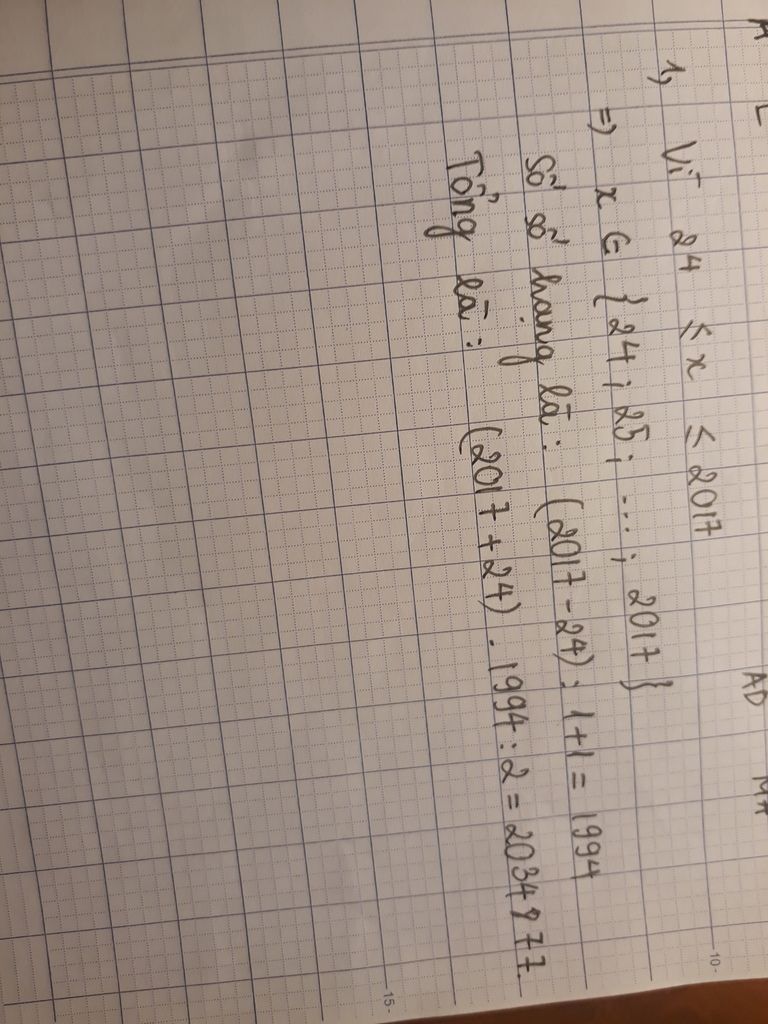 A L AD MA
1, Vì 24 ≤ x ≤ 2017
=> x ∈ {24 ; 25 ; ... ; 2017}
Số số hạng là : (2017 - 24) : 1 + 1 = 1994
Tổng là : (2017 + 24) . 1994 : 2 = 2034877.
10-
15-